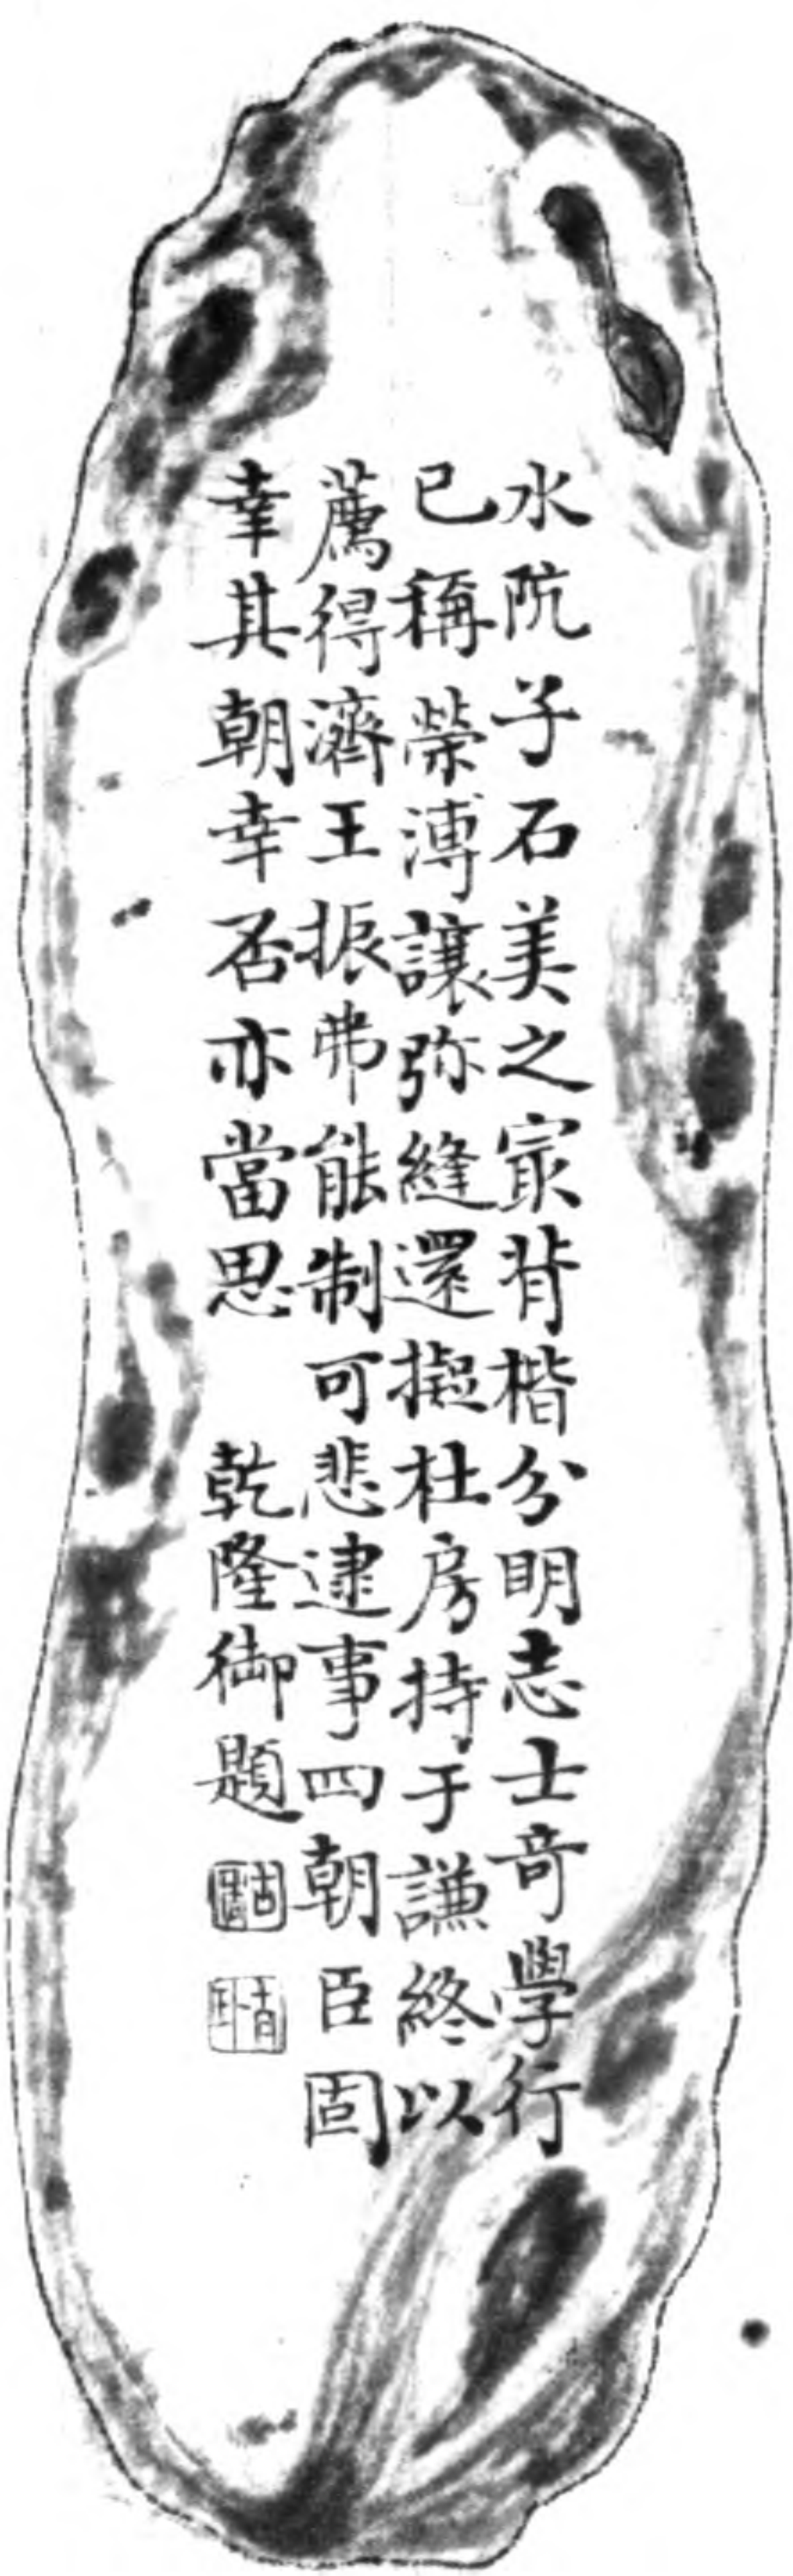 水阬子石美之㝡背楷分明志士竒學行
已稱榮溥讓弥縫還擬杜房持于謙終以
薦得濟王振弗能制可悲逮事四朝臣固
幸其朝幸否亦當思 乾隆御題